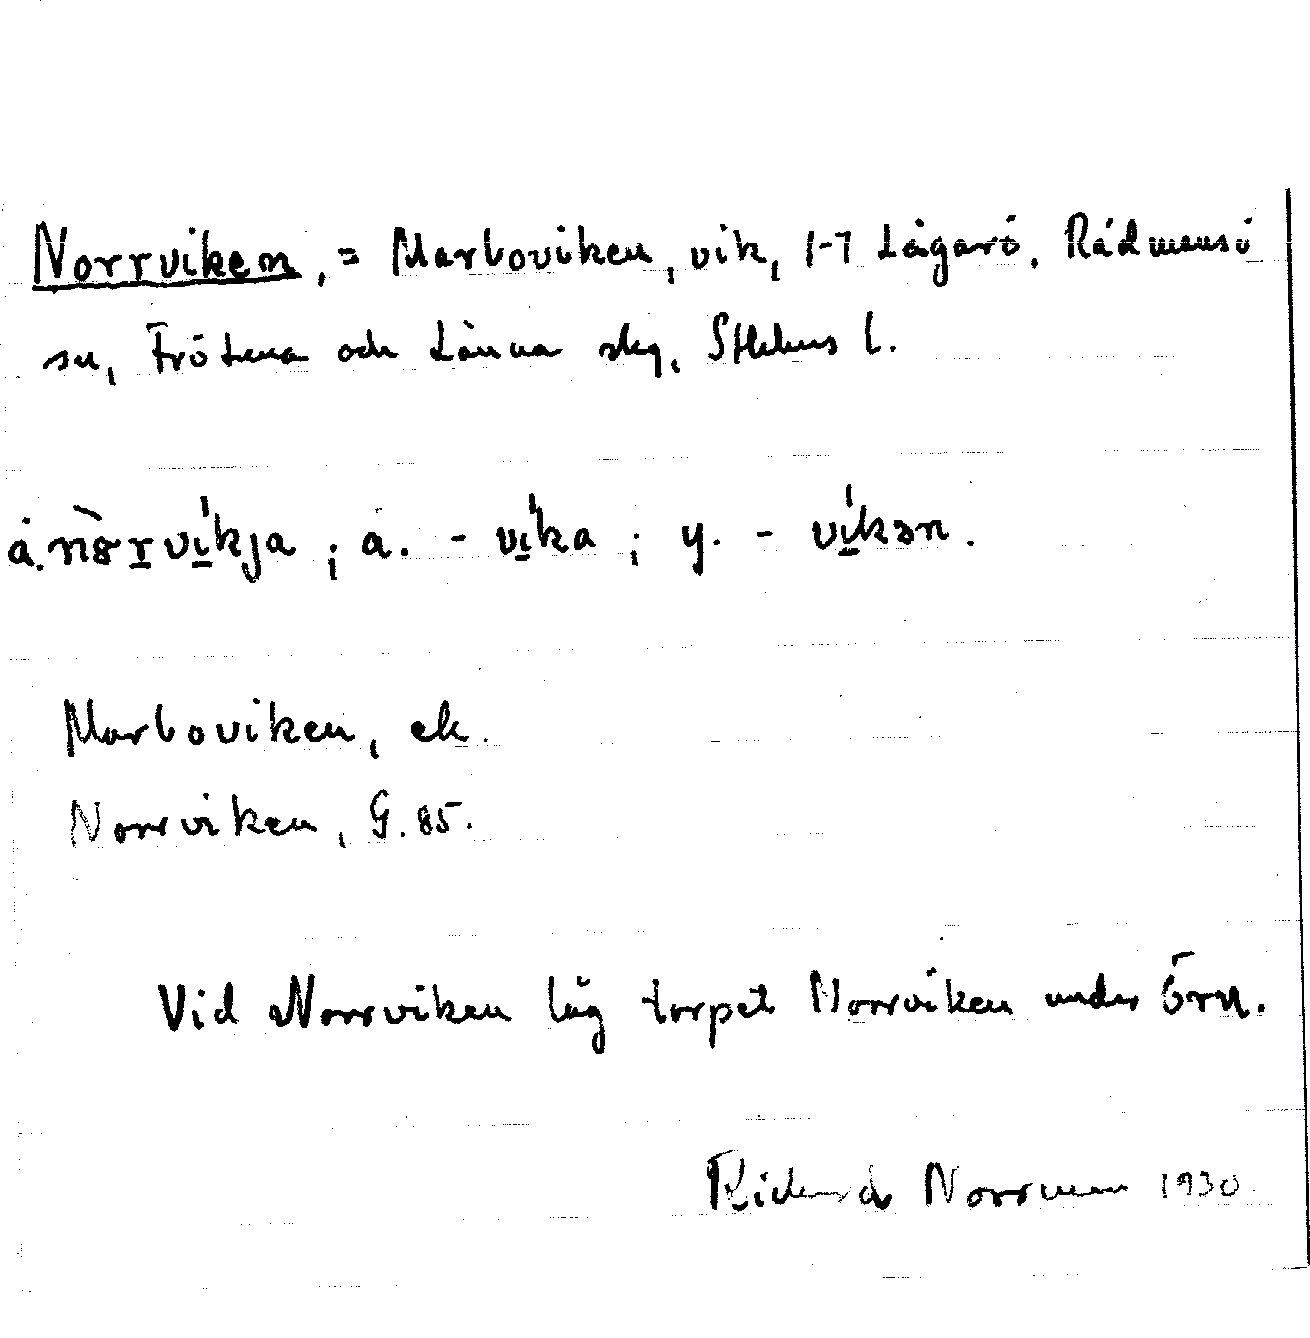 Norrviken, = Marboviken, vik, 1-7 Lågarö, Rådmansö
sn, Frötuna och Länna skg, Sthlms l.
å. nòrvíkja ; a. - víka ; y. - víkən.
Marboviken, ek.
Norrviken, G. 85.
Vid Norrviken låg torpet Norrviken under Örn.
Rickard Norrman 1930